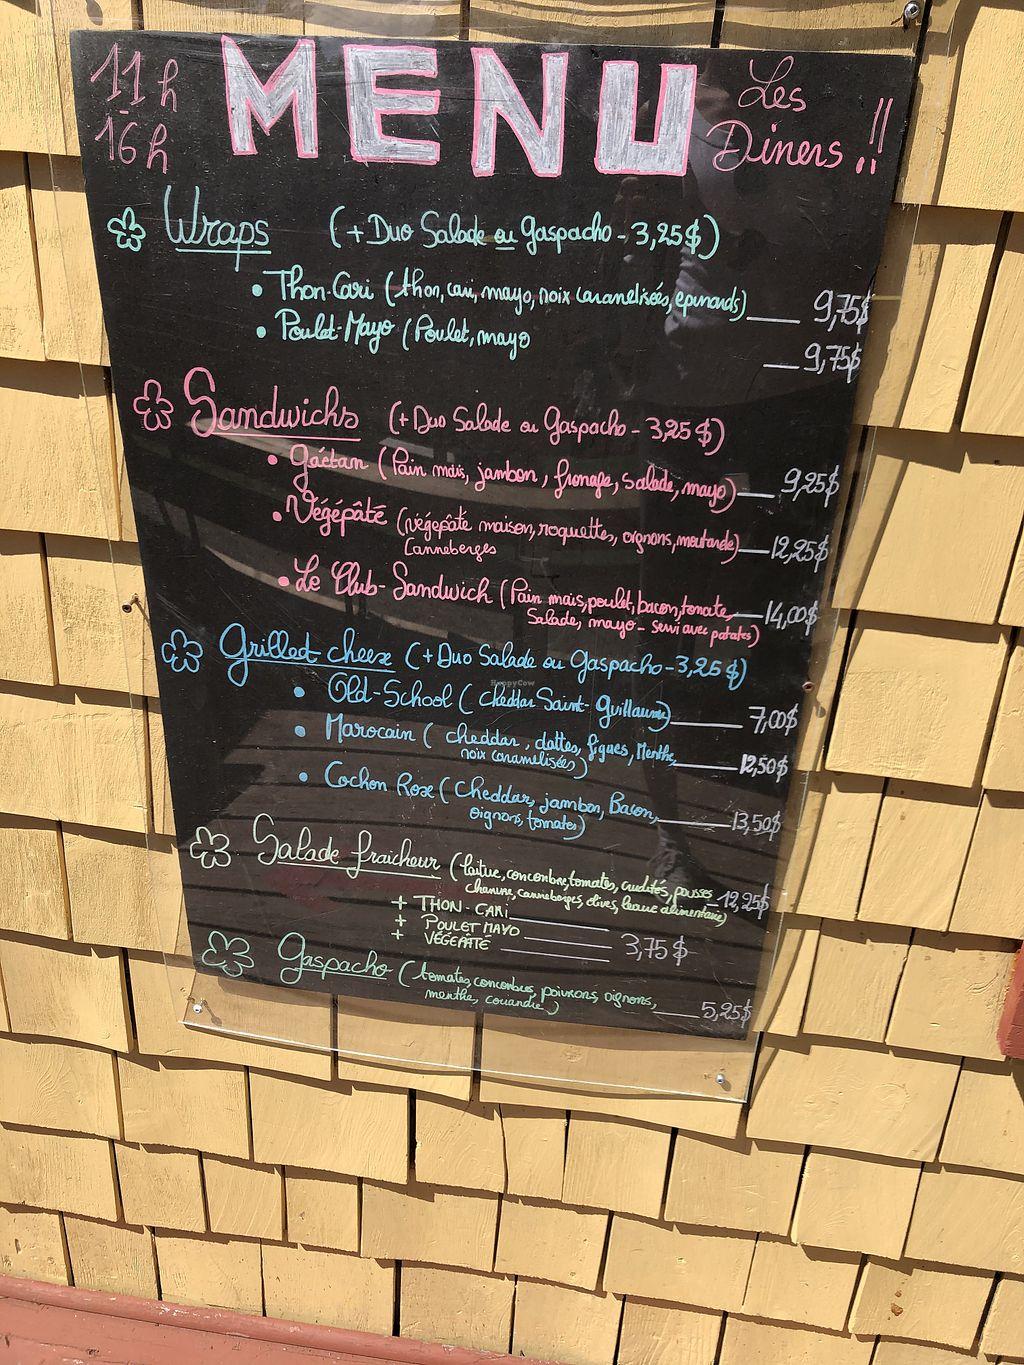 11h
-
16h
MENU
Les
Diners !!
Wraps (+ Duo Salade ou Gaspacho - 3,25$)
• Thon-Cari (thon, cari, mayo, noix caramelisées, epinards) 9,75$
• Poulet-Mayo (Poulet, mayo
9,75$
Sandwichs (+ Duo Salade ou Gaspacho - 3,25$)
• Gaétan (Pain maïs, jambon, fromage, salade, mayo) 9,25$
• Végépâté (végépâté maison, roquettes, oignons, moutarde) 12,25$
Canneberges
• Le Club-Sandwich (Pain maïs, poulet, bacon, tomate, 14,00$
Salade, mayo - servi avec patates)
Grilled cheese (+ Duo Salade ou Gaspacho - 3,25$)
• Old-School (cheddar Saint-Guillaume) 7,00$
• Marocain (cheddar, dattes, figues, Menthe, 12,50$
noix caramelisées)
• Cochon Rose (Cheddar, jambon, Bacon, 13,50$
oignons, tomates)
Salade fraicheur (laitue, concombre, tomates, crudités, pousses 12,25$
chanvre, canneberges, olives, levure alimentaire)
+ THON-CARI
+ POULET MAYO
+ VÉGÉPÂTÉ 3,75$
Gaspacho (tomates, concombres, poivrons, oignons,
menthe, coriandre) 5,25$
HappyCow